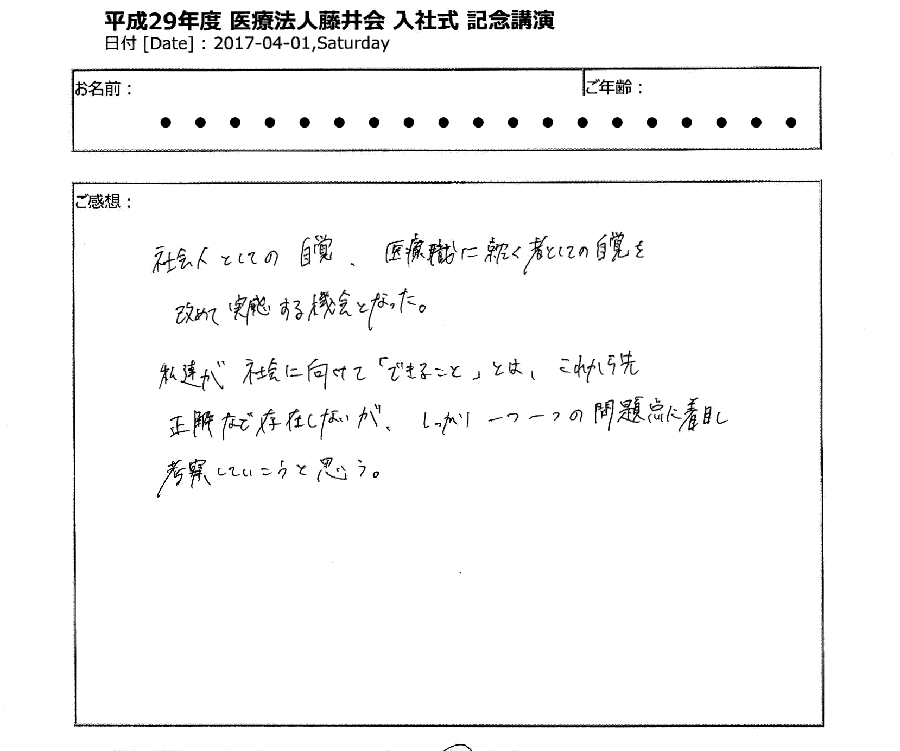 平成29年度 医療法人藤井会 入社式 記念講演
日付 [Date] : 2017-04-01,Saturday
お名前：
ご年齢：
ご感想：
社会人としての 自覚、医療職に就く者としての自覚を
改めて実感する機会となった。
私達が 社会に向けて「できること」とは、これから先
正解など存在しないが、しっかり一つ一つの問題点に着目し
考察していこうと思う。